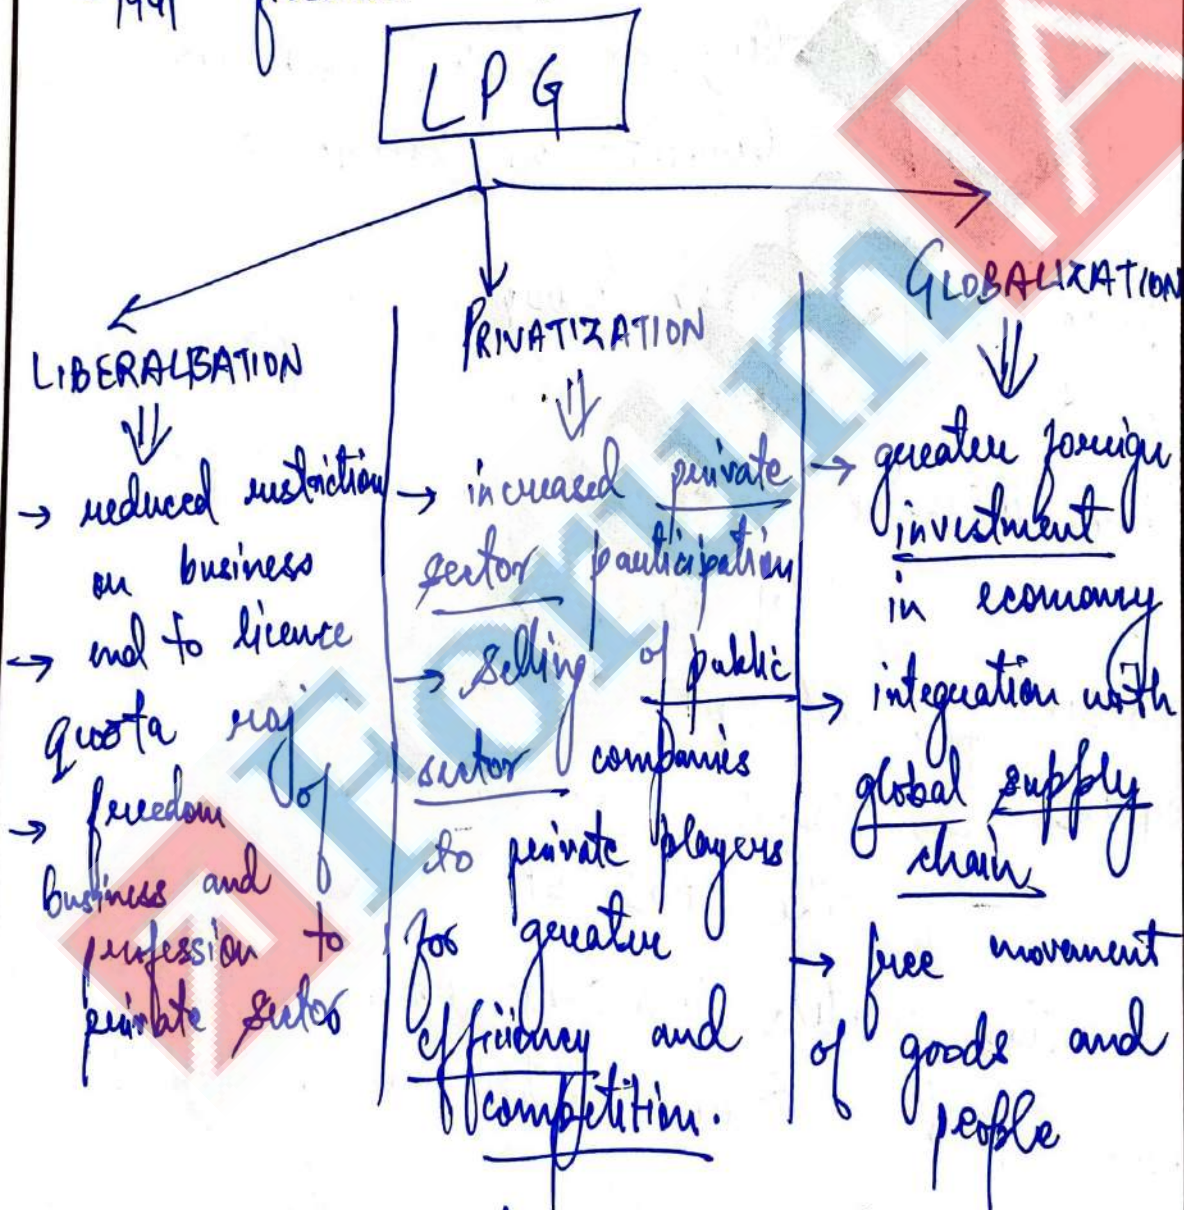 1991
LPG
LIBERALISATION
→ reduced restriction
on business
→ end to licence
quota raj
→ freedom of
business and
profession to
private sector
PRIVATIZATION
→ increased private
sector participation
→ selling of public
sector companies
to private players
for greater
efficiency and
competition.
GLOBALIZATION
→ greater foreign
investment
in economy
→ integration with
global supply
chain
→ free movement
of goods and
people
ForumIA